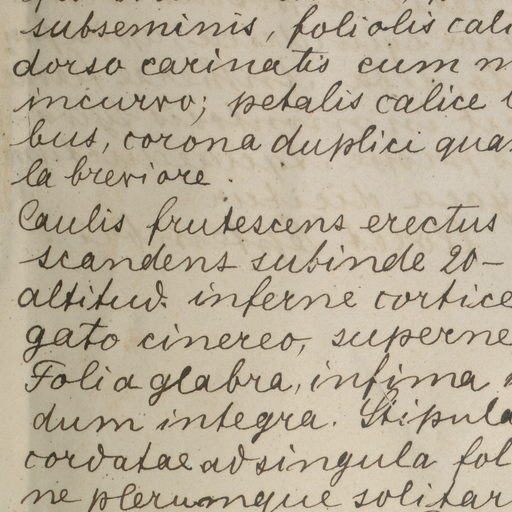 subseminis, foliolis cali
dorso carinatis cum m
incurvo; petalis calice
bus, corona duplici qua
la breviore.
Caulis frutescens erectus
scandens subinde 20-
altitud. inferne cortice
gato cinereo, superne
Folia glabra, infima
dum integra. Stipula
cordatae adsingula fol
ne plerumque solitar